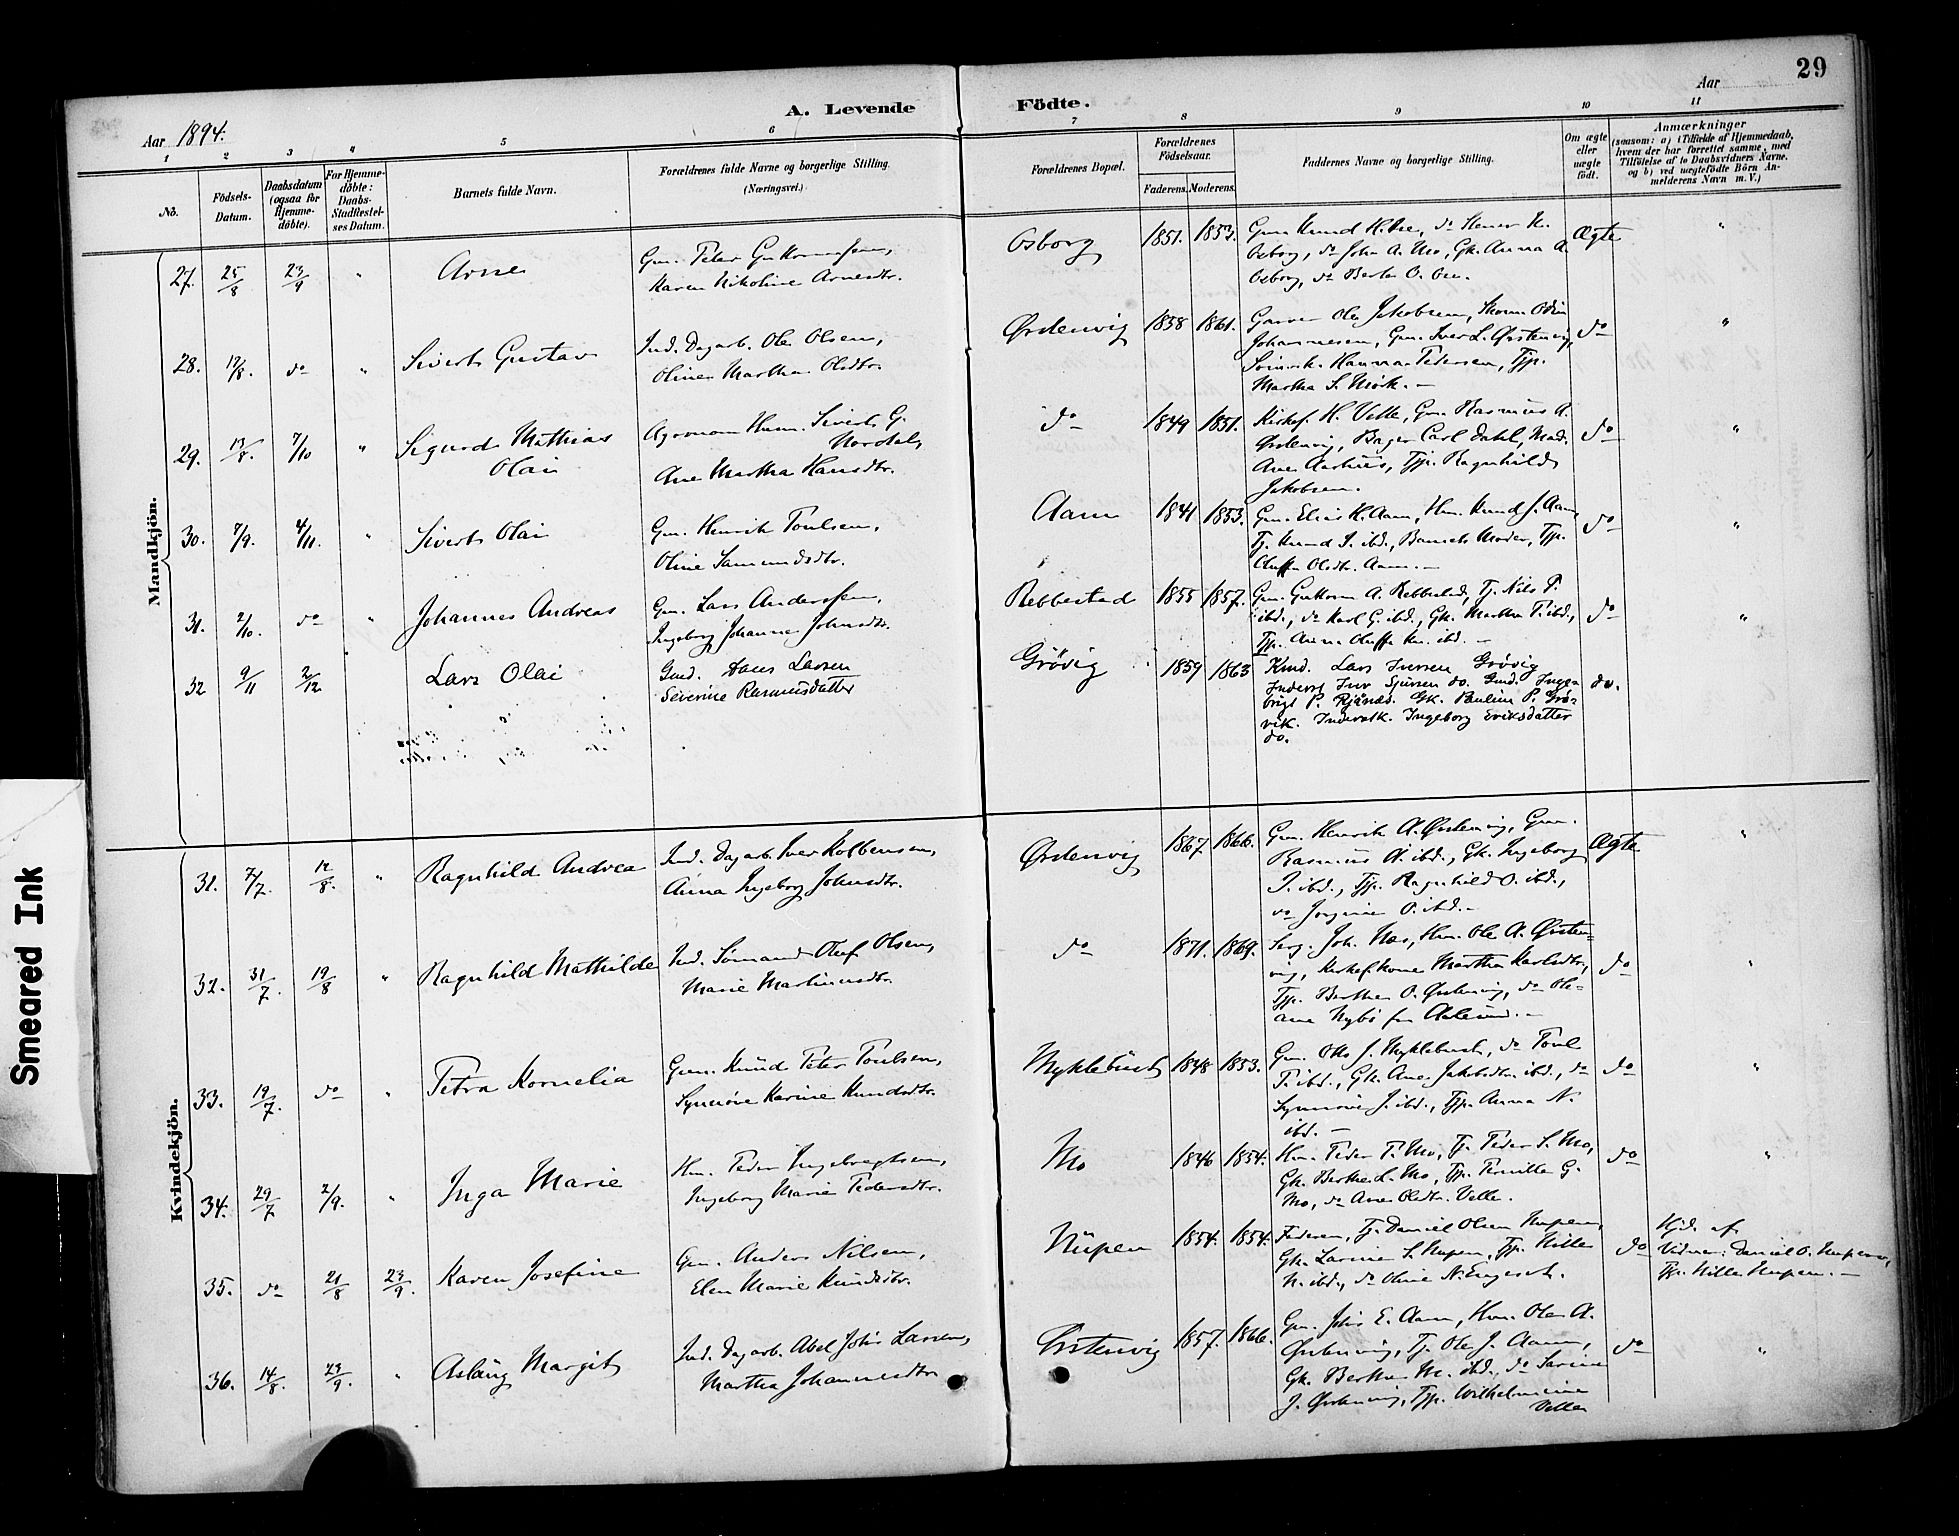 29
A. Levende Födte.
Aar 1894.
Aar
1 2 3 4 5 6 7 8 9 10 11
No.
Födsels-
Datum.
Daabsdatum
(ogsaa for
Hjemme-
döbte).
For Hjemme-
döbte:
Daabs-
Stadfæstel-
ses Datum.
Barnets fulde Navn.
Forældrenes fulde Navne og borgerlige Stilling.
(Næringsvei.)
Forældrenes Bopæl.
Forældrenes
Födselsaar.
Faderens. Moderens.
Faddernes Navne og borgerlige Stilling.
Om ægte
eller
uægte
födt.
Anmærkninger
(saasom: a) i Tilfælde af Hjemmedaab,
hvem der har forrettet samme, med
Tilföielse af to Daabsvidners Navne,
og b) ved uægtefödte Börn An-
melderens Navn m. V.)
Mandkjön.
27. 25/8 23/9 " Arne
Gm. Peter Guttormsen,
Karen Nikoline Arnesdtr.
Osborg 1851. 1853.
Gm. Knud H. , do
Osborg, do John A. Mo, Gk. Anna A.
Osborg, do Berte O.
Ægte "
28. 12/8. do " Sivert Gustav
Ind. Dagarb. Ole Olsen,
Oline Martha Olsdtr.
Ørstenvig 1858 1861.
Garver Ole Jakobsen, Odin
Johannesen, Gm. Iver L. Ørstenvig,
Hanna Pedersen, Tjp.
Martha S. Mork. —
do "
29. 13/8. 7/10 " Sigurd Mathias
Olai
Agronom Hm. Sivert G.
Nordal,
Ane Martha Hansdtr.
do 1849 1851.
Kirkes. H. Velle, Gm. Rasmus A.
Ørstenvig, Bager Carl Dahl, Mad.
Ane Aarhus, Tjp. Ragnhild
Jakobsen.
do "
30. 7/9. 4/11. " Sivert Olai
Gm. Henrik Poulsen,
Oline Samundsdtr.
Aam 1841 1853.
Gm. Elias K. Aam, Hm. Knud J. Aam,
Tj. Knud I. ibd., Barnets Moder, Tjp.
Oluffa Olsdtr. Aam. —
do "
31. 2/10. do " Johannes Andreas
Gm. Lars Anderssen,
Ingeborg Johanne Johnsdtr.
Rebbestad 1855 1857.
Gm. Guttorm A. Rebbestad, Tj. Nils P.
ibd., do Karl G. ibd., Gk. Martha P. ibd.,
Tjp. Anna Oluffa Kn. ibd. —
do "
32 9/11 2/12 Lars Olai
Gmd. Hans Larsen
Severine Rasmusdatter
Grøvig 1859 1863
Kmd. Lars Iversen Grøvig
Inderst Iver Sjursen do. Gmd. Inge-
brigt P. Rjånes. Gk. Pauline P. Grø-
vik. Inderstk. Ingeborg Eriksdatter
do.
do.
Kvindekjön.
31. 7/7. 12/8. " Ragnhild Andrea
Ind. Dagarb. Iver Kolbensen,
Anna Ingeborg Johnsdtr.
Ørstenvig 1867. 1866.
Gm. Henrik A. Ørstenvig, Gm.
Rasmus A. ibd., Gk. Ingeborg
P. ibd., Tjp. Ragnhild O. ibd.,
do Jorgine O. ibd. —
Ægte "
32. 31/7. 19/8 " Ragnhild Mathilde
Ind. Sømand Oluf Olsen,
Marie Martinusdtr.
do 1871. 1869.
Serg. Joh. Næs, Hm. Ole A. Ørsten-
vig, Kirkes.kone Martha Karlsdtr.,
Tjp. Berthe O. Ørstenvig, do Ole-
ane Nybø fra Aalesund. —
do "
33. 19/7. do " Petra Kornelia
Gm. Knud Peter Poulsen,
Synnøve Karine Knudsdtr.
Myklebust 1848 1853.
Gm. Otto J. Myklebust, do Poul
P. ibd., Gk. Ane Jakobsdtr. ibd., do
Synnøve J. ibd., Tjp. Anna N.
ibd. —
do "
34. 29/7 2/9. " Inga Marie
Hm. Peder Ingebregtsen,
Ingeborg Marie Pedersdtr.
Mo 1846 1854.
Hm. Peder P. Mo, Tj. Peder S. Mo,
Gk. Berthe L. Mo, Tjp. Pernille G.
Mo, do Ane Olsdtr. Velle.
do "
35. do 21/8 23/9. Karen Josefine
Gm. Anders Nilsen,
Elen Marie Knudsdtr.
Nupen 1854. 1854.
Faderen, Tj. Daniel Olsen Nupen,
Gk. Larine S. Nupen, Tjp. Nille
N. ibd., do Oline N. Engeset.
do
Hjd. af
Vidner: Daniel O. Nupen,
Tjp. Nille Nupen. —
36. 14/8. 23/9. " Aslaug Margit
Ind. Dagarb. Abel Johs Larsen,
Martha Johannesdtr.
Ørstenvig 1857. 1866.
Gm. Johs E. Aam, Hm. Ole A.
Ørstenvig, Tj. Ole J. Aam,
Gk. Berthe M. ibd., do Sarine
J. Ørstenvig, Tjp. Wilhelmine
Velle
do "
Smeared Ink